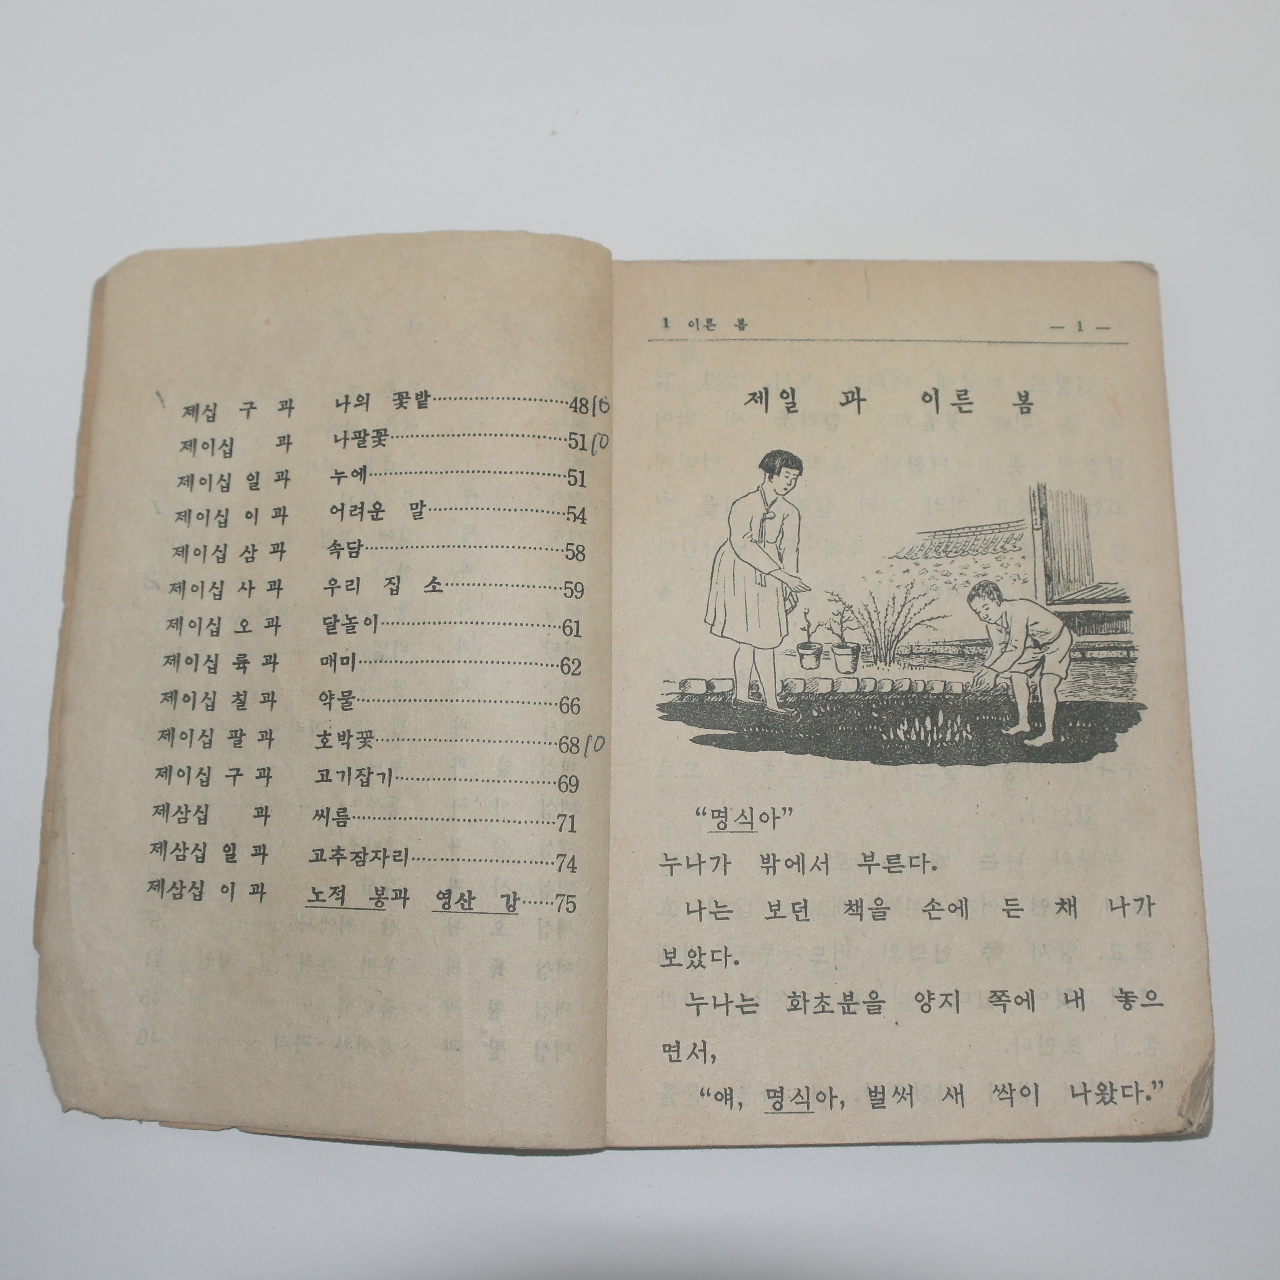 제십 구 과 나의 꽃밭 48 10
제이십 과 나팔꽃 51 10
제이십 일 과 누에 51
제이십 이 과 어려운 말 54
제이십 삼 과 속담 58
제이십 사 과 우리 집 소 59
제이십 오 과 달놀이 61
제이십 륙 과 매미 62
제이십 칠 과 약물 66
제이십 팔 과 호박꽃 68 10
제이십 구 과 고기잡기 69
제삼십 과 씨름 71
제삼십 일 과 고추잠자리 74
제삼십 이 과 노적 봉과 영산 강 75
1 이른 봄 — 1 —
제일 과 이른 봄
“명식아”
누나가 밖에서 부른다.
나는 보던 책을 손에 든 채 나가
보았다.
누나는 화초분을 양지 쪽에 내 놓으
면서,
“얘, 명식아, 벌써 새 싹이 나왔다.”